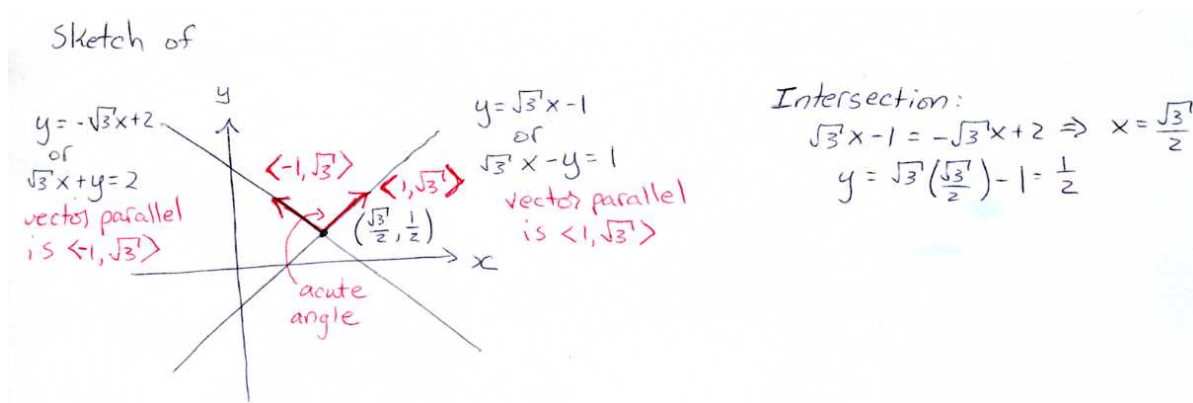 Sketch of
y
y = -√3x+2
or
√3x+y=2
vector parallel
is <-1,√3>
<-1,√3>
<1,√3>
(√3/2, 1/2)
x
acute
angle
y=√3x-1
or
√3x-y=1
vector parallel
is <1,√3>
Intersection:
√3x-1 = -√3x+2 ⇒ x = √3/2
y = √3(√3/2)-1 = 1/2